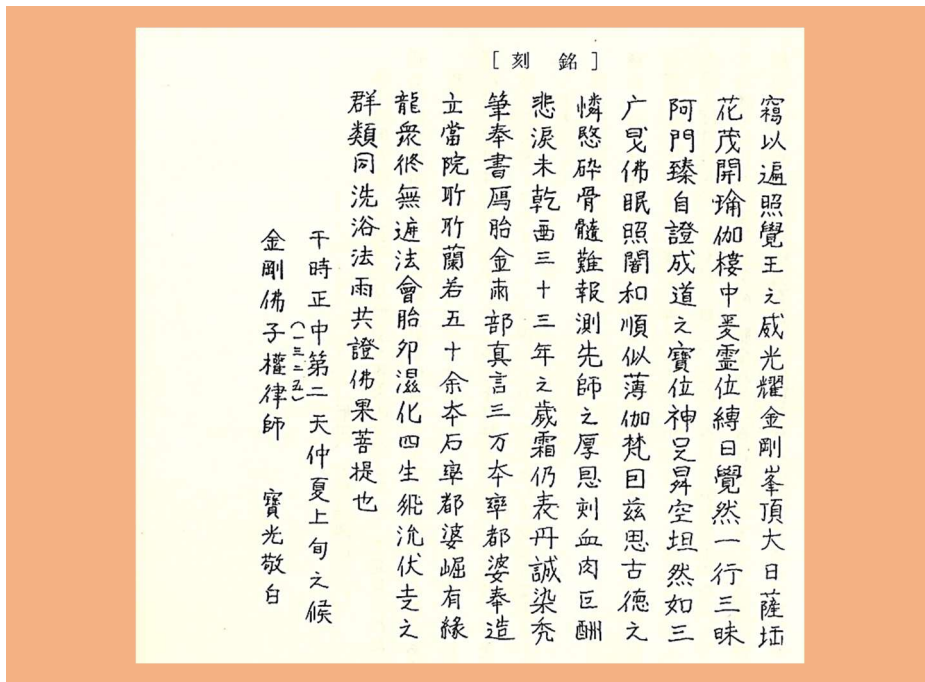 [刻 銘]
竊以遍照覺王之威光耀金剛峯頂大日薩埵
花茂開瑜伽樓中爰霊位縛日覺然一行三昧
阿門臻自證成道之寶位神足昇空坦然如三
广旻佛眠照闇和順似薄伽梵因茲思古德之
憐愍砕骨髓難報測先師之厚恩刻血肉叵酬
悲淚未乾西三十三年之歲霜仍表丹誠染禿
筆奉書寫胎金両部真言三万夲率都婆奉造
立當院所所蘭若五十余夲石率都婆崛有緣
龍衆修無遮法會胎卵濕化四生飛沉伏走之
群類同洗浴法雨共證佛果菩提也
干時正中第二天仲夏上旬之候
(一三二五)
金剛佛子權律師 寶光敬白